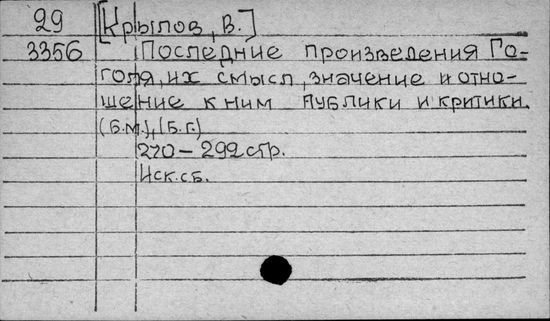 29 [Крылов, В.]
3356 Последние произведения Го-
голя, их смысл, значение и отно-
шение к ним публики и критики.
(Б.м.), (Б.г.)
270-292 стр.
Иск.сб.